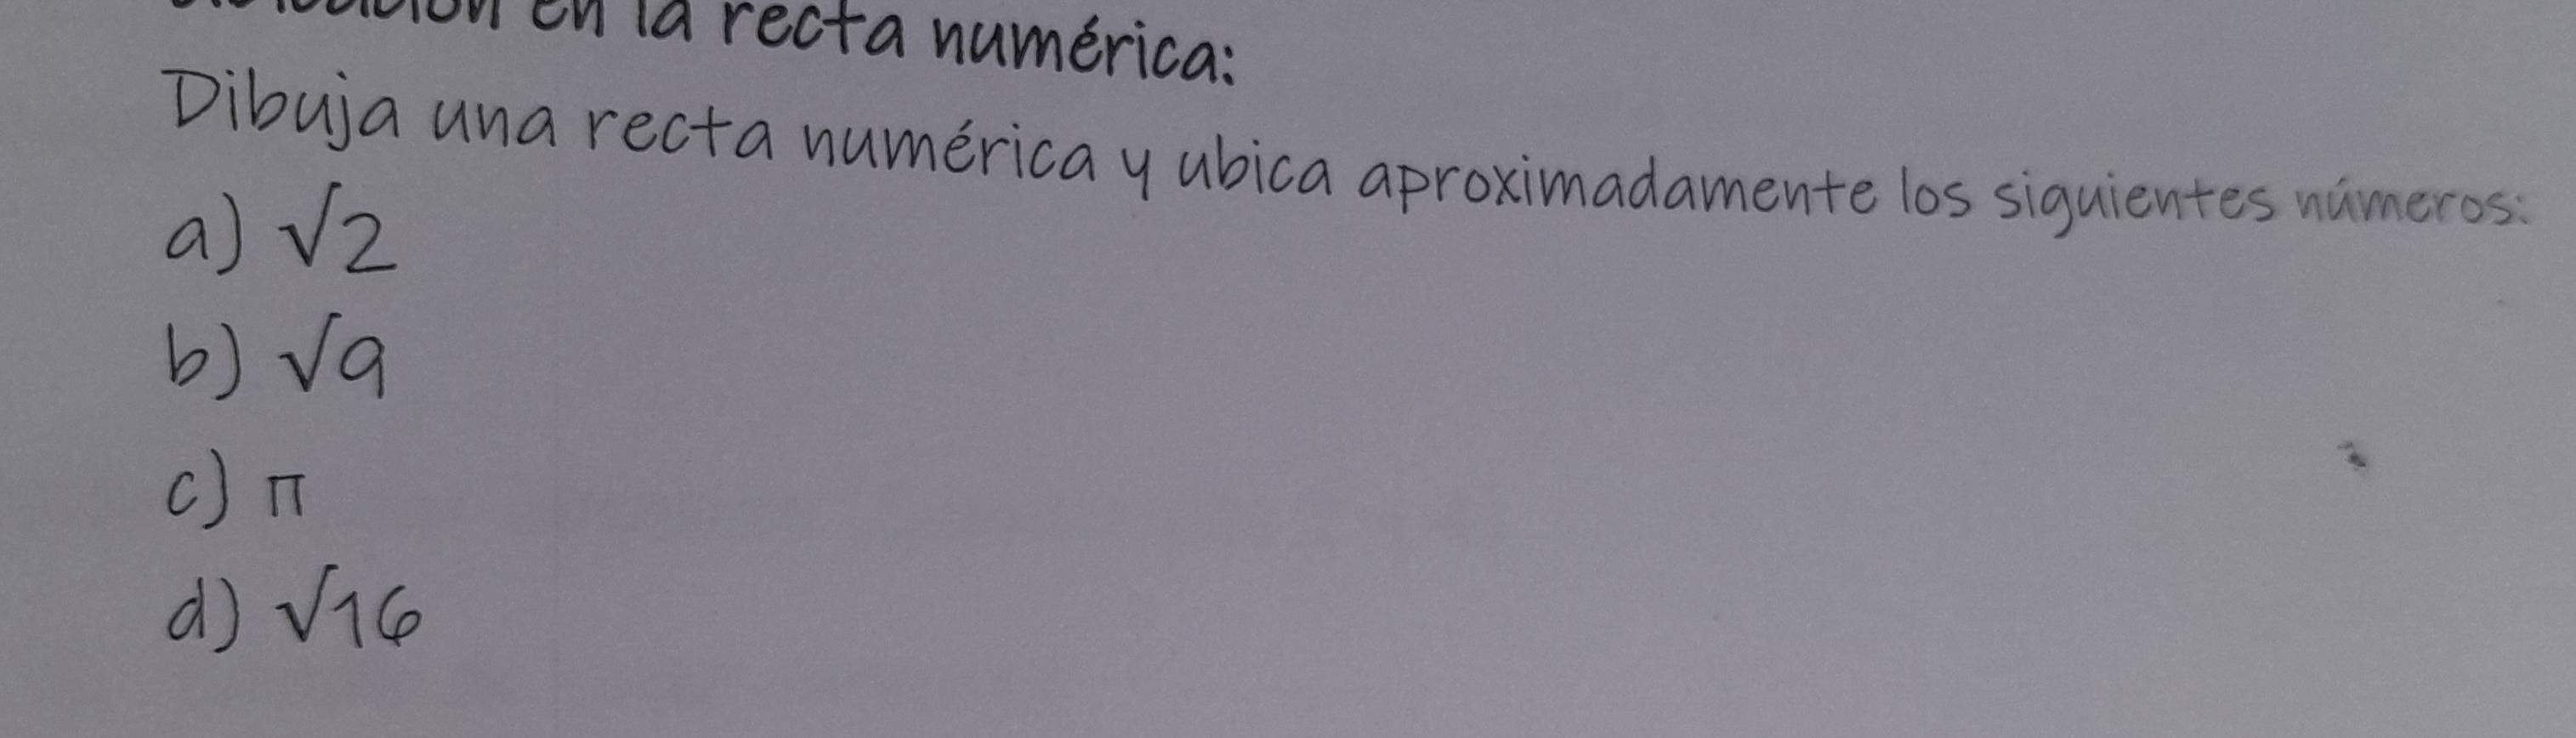 en la recta numérica:
Dibuja una recta numérica y ubica aproximadamente los siguientes números:
a) √2
b) √9
c) π
d) √16